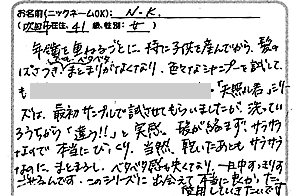 お名前(ニックネームOK): N.K.
在住、41歳、性別: 女
年齢を重ねるごとに、特に子供を産んでから、髪の
ぱさつき、まとまりがなくなり、色々なシャンプーを試して
も
ズは、最初サンプルで試させてもらいましたが、洗ってい
るうちから「違う!!」と実感。髪が絡まず、サラサラ
なので本当にびっくり。当然、乾いたあともサラサラ
なのに、まとまるし、ベタベタ感も失くなり、一日中すっきり
このシリーズに出会えて本当に良かった。
使用していきたいです